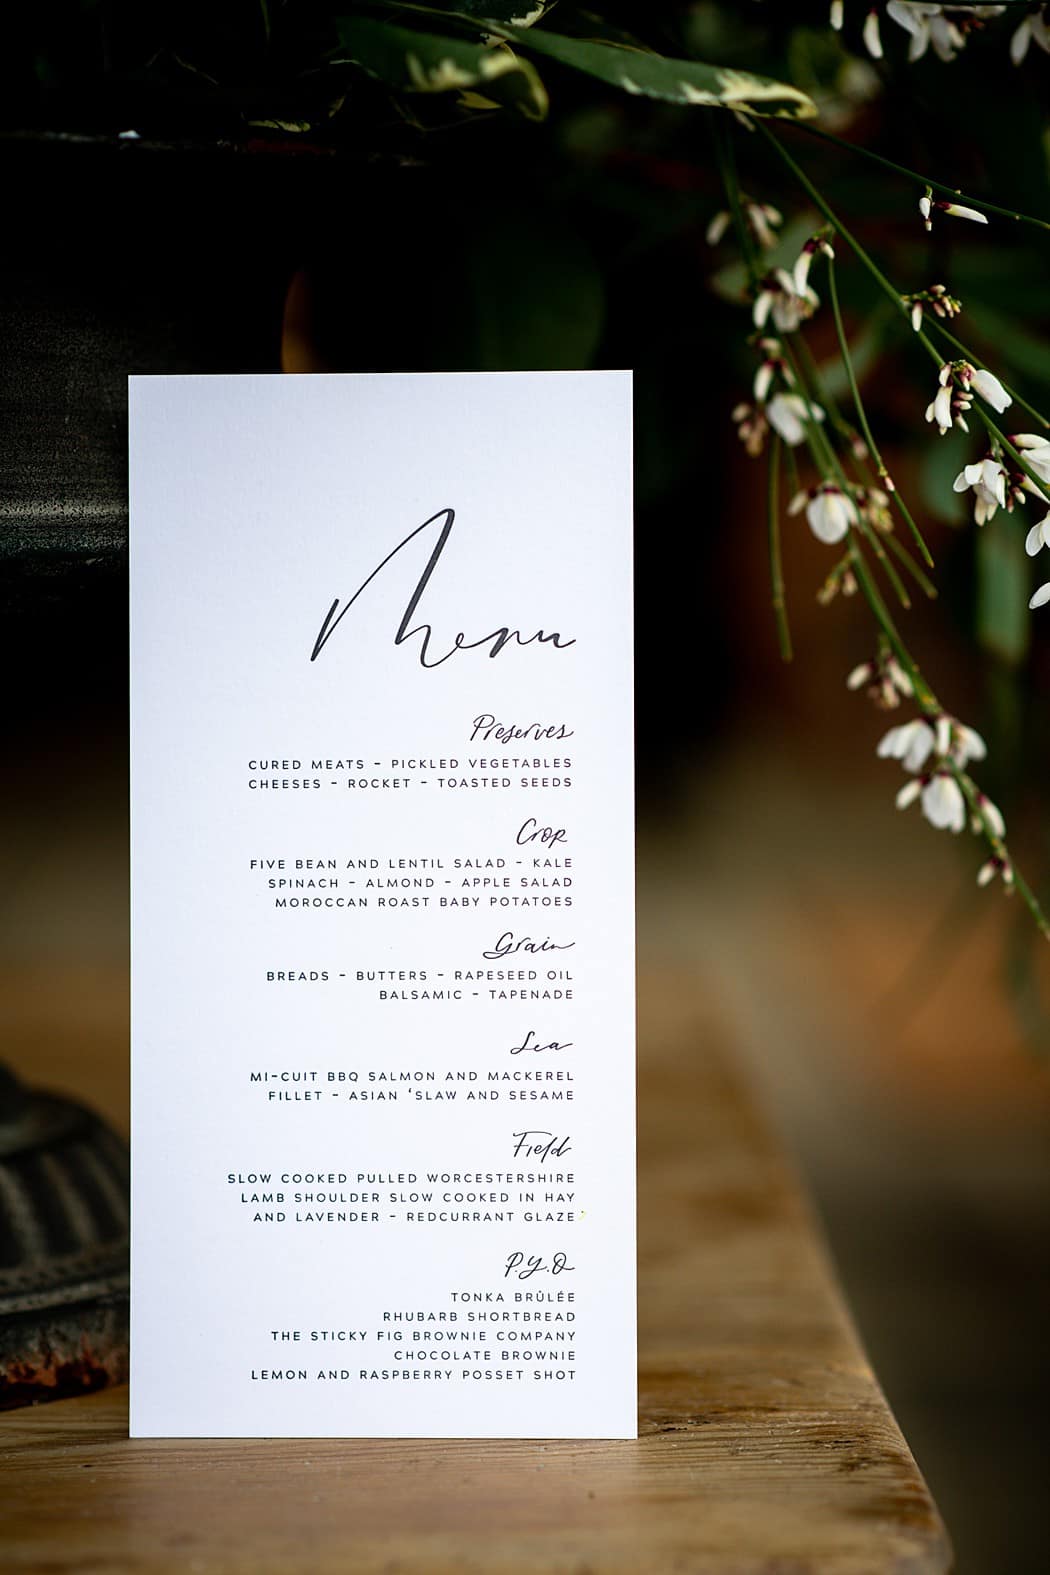 Menu
Preserves
CURED MEATS - PICKLED VEGETABLES
CHEESES - ROCKET - TOASTED SEEDS
Crop
FIVE BEAN AND LENTIL SALAD - KALE
SPINACH - ALMOND - APPLE SALAD
MOROCCAN ROAST BABY POTATOES
Grain
BREADS - BUTTERS - RAPESEED OIL
BALSAMIC - TAPENADE
Sea
MI-CUIT BBQ SALMON AND MACKEREL
FILLET - ASIAN ‘SLAW AND SESAME
Field
SLOW COOKED PULLED WORCESTERSHIRE
LAMB SHOULDER SLOW COOKED IN HAY
AND LAVENDER - REDCURRANT GLAZE
P.Y.O
TONKA BRÛLÉE
RHUBARB SHORTBREAD
THE STICKY FIG BROWNIE COMPANY
CHOCOLATE BROWNIE
LEMON AND RASPBERRY POSSET SHOT